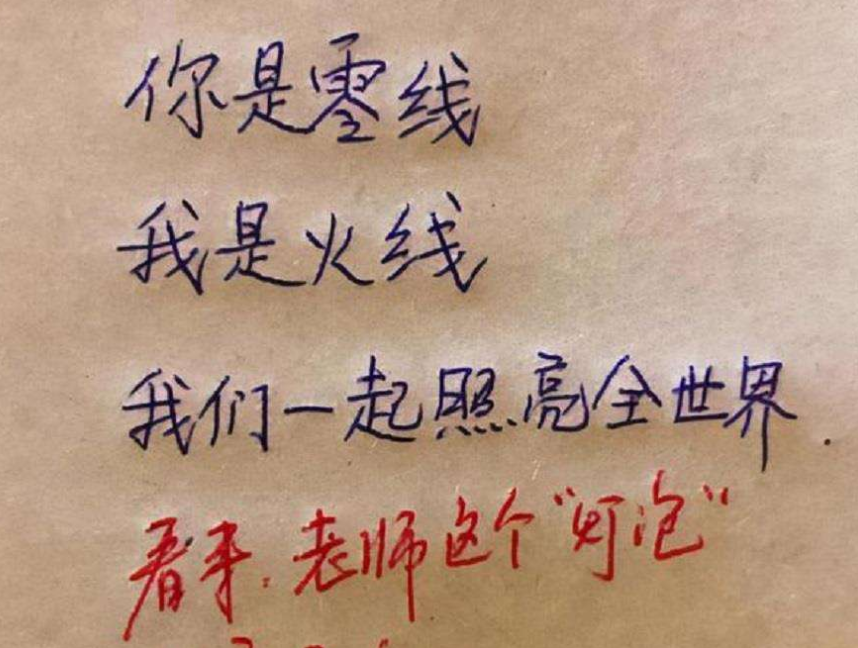 你是零线
我是火线
我们一起照亮全世界.
看来,老师这个“灯泡”